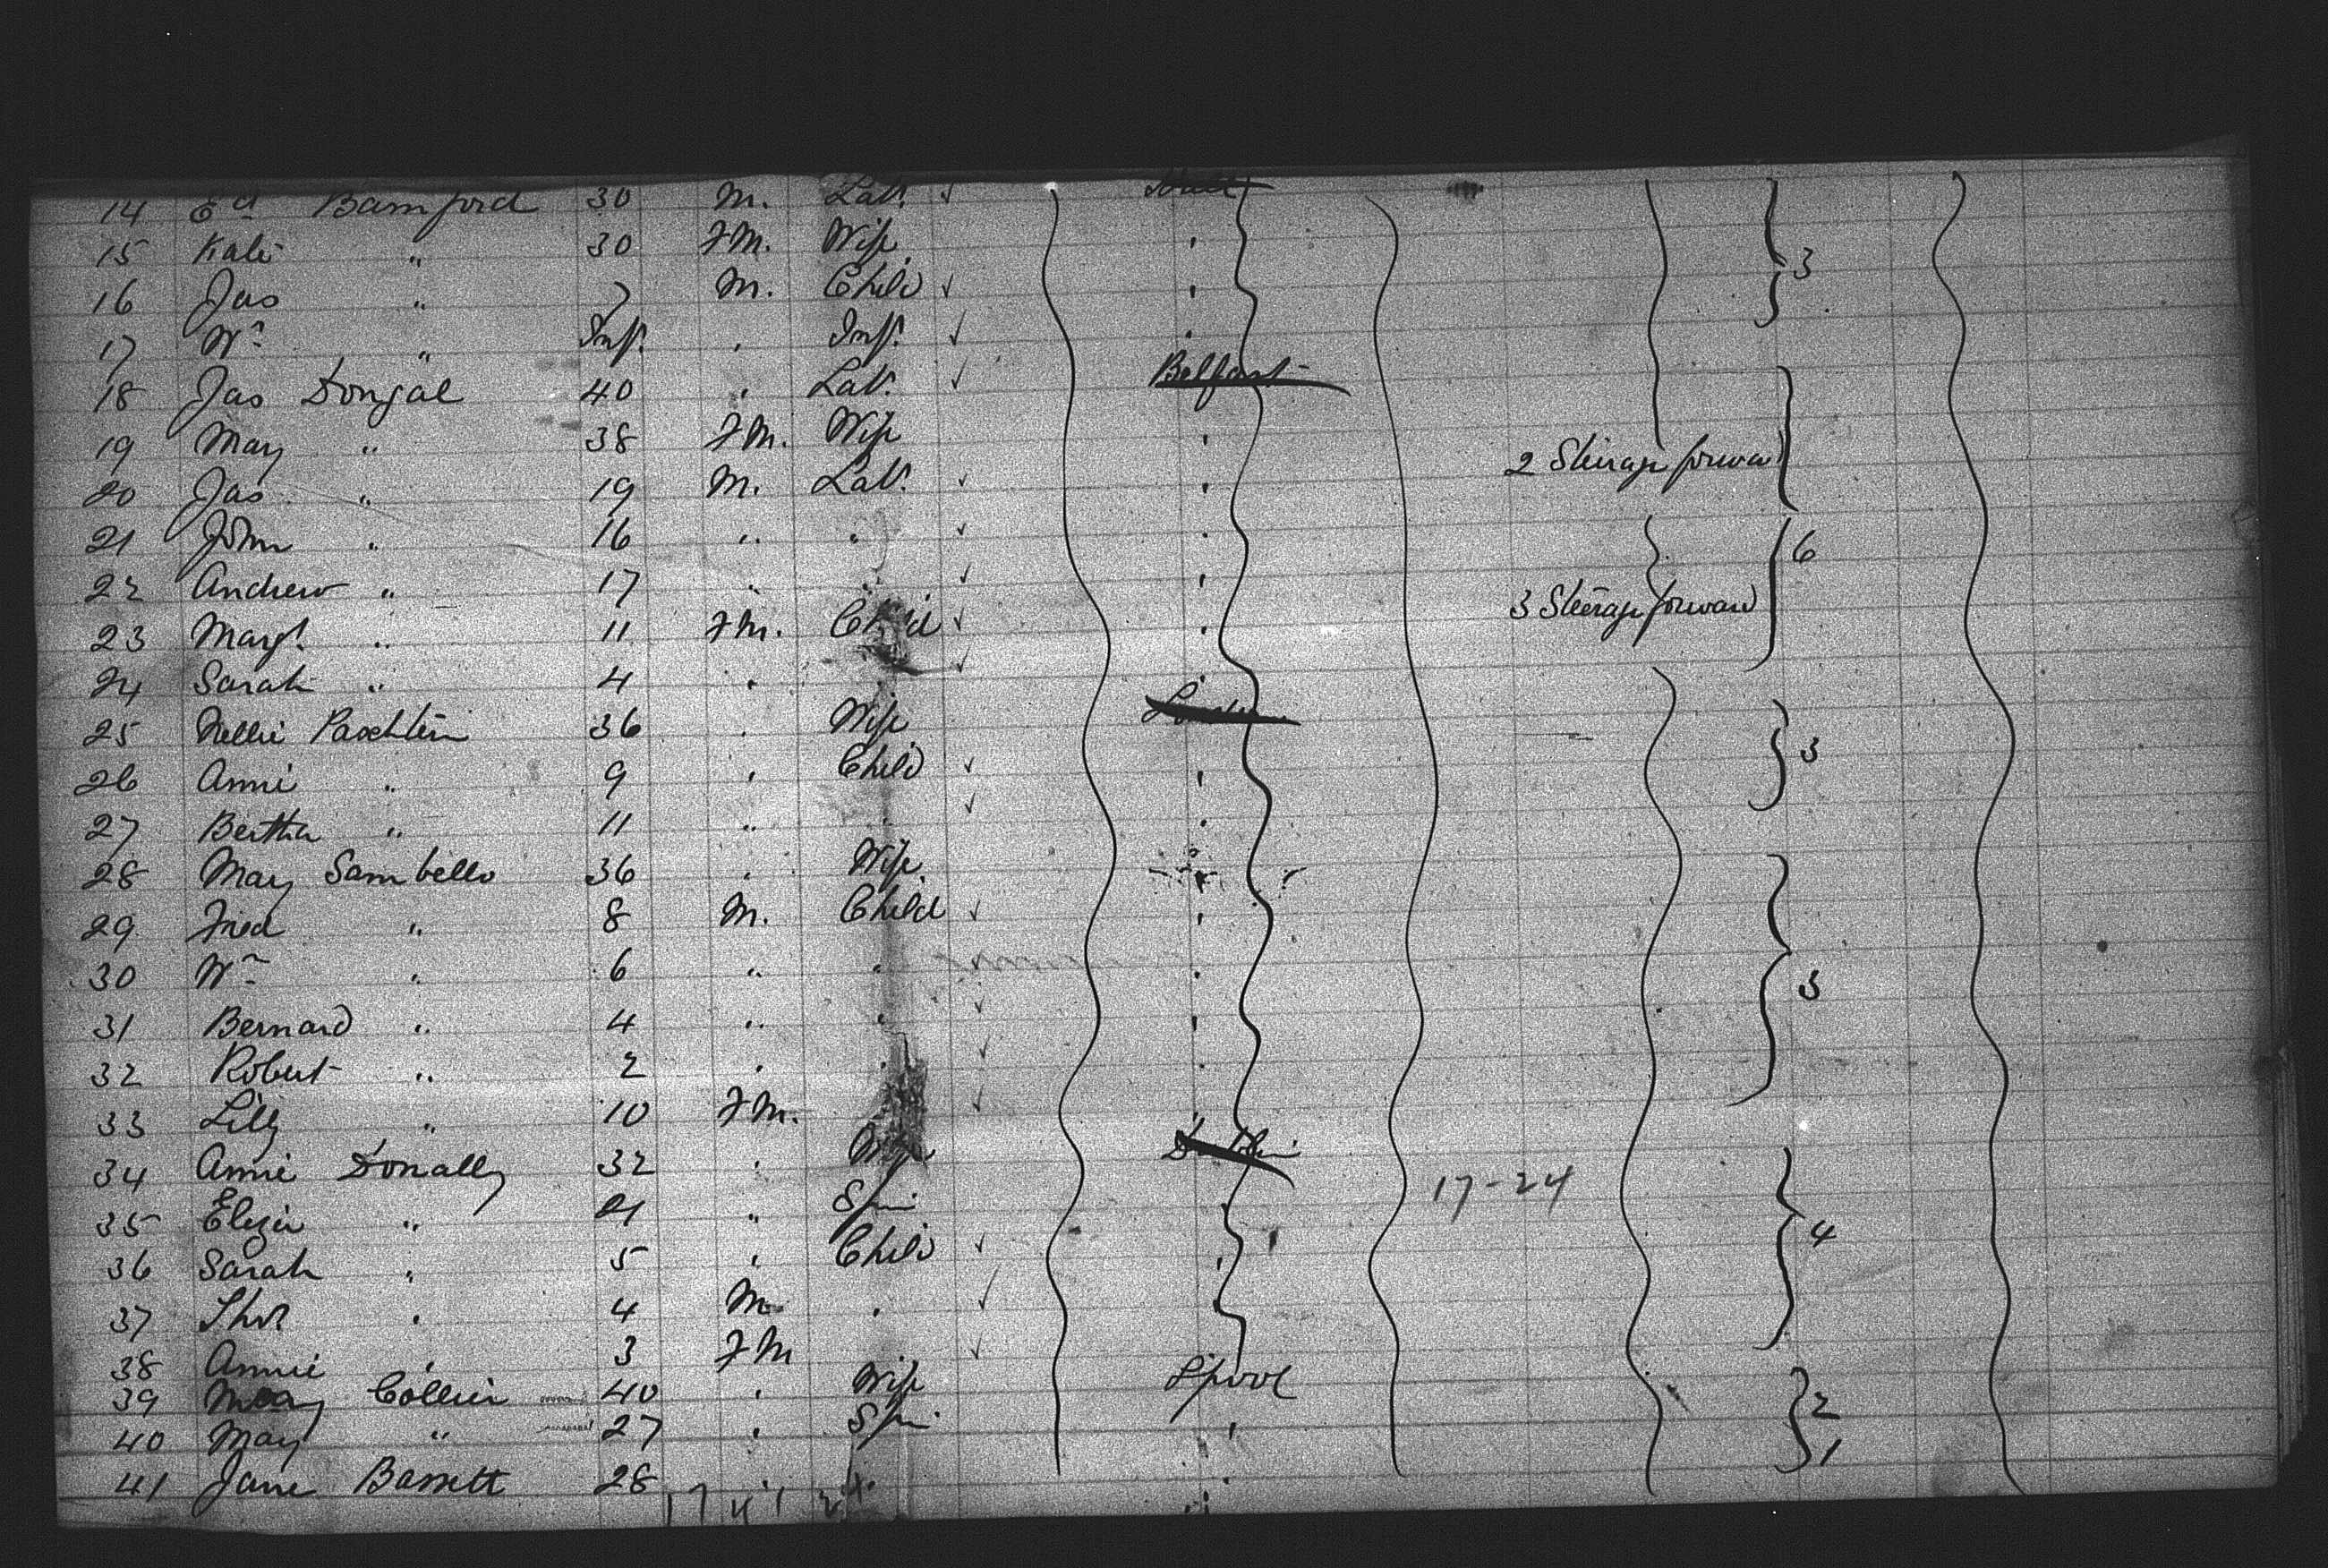 14 Ed Bamford 30 M. Lab. ✓
15 Kate " 30 FM. Wife "
16 Jas " 7 M. Child ✓ " 3
17 Wm " Inf. " Inf. ✓ "
18 Jas Dongal 40 " Lab. ✓ Belfast
19 Mary " 38 FM. Wife " 2 Steerage forwa
20 Jas " 19 M. Lab. ✓ "
21 John " 16 " " ✓ " 6
22 Andrew " 17 " " ✓ "
23 Margt. " 11 FM. Child ✓ " 3 Steerage forward
24 Sarah " 4 " " ✓ "
25 Nellie 36 " Wife
26 Annie " 9 " Child ✓ " 3
27 Bertha " 11 " " ✓ "
28 Mary Sambells 36 " Wife "
29 Fred " 8 M. Child ✓ "
30 Wm " 6 " " "
31 Bernard " 4 " " ✓ " 3
32 Robert " 2 " " ✓ "
33 Lilly " 10 FM. ✓ "
34 Annie Donally 32 " Wife Dublin
35 Eliza " 21 " Spin " 17-24
36 Sarah " 5 " Child ✓ " 4
37 Thos " 4 M " ✓ "
38 Annie " 3 FM ✓
39 Mary Collier 40 " Wife L'pool 2
40 May " 27 " Spin " 1
41 Jane Bassett 28 " " "